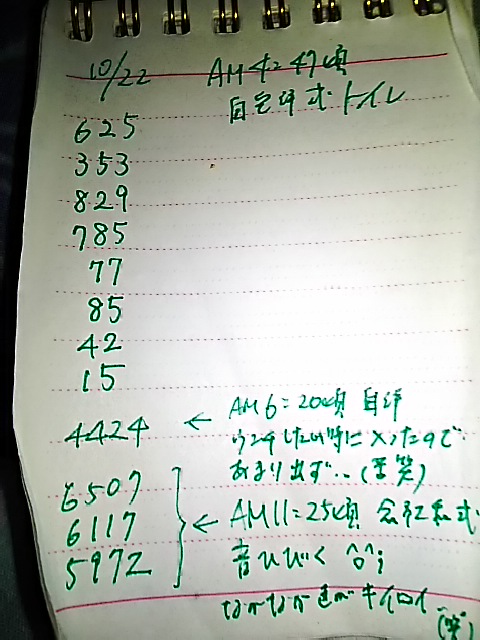 10/22 AM4:47頃
自宅洋式トイレ
625
353
829
785
77
85
42
15
4424 ← AM6:20頃 自洋
ウンチしたい時に入ったので
あまり出ず‥(苦笑)
6507
6117 ← AM11:25頃 会社和式
5972 音ひびく ^o^;
なかなか色がキイロイ (笑)